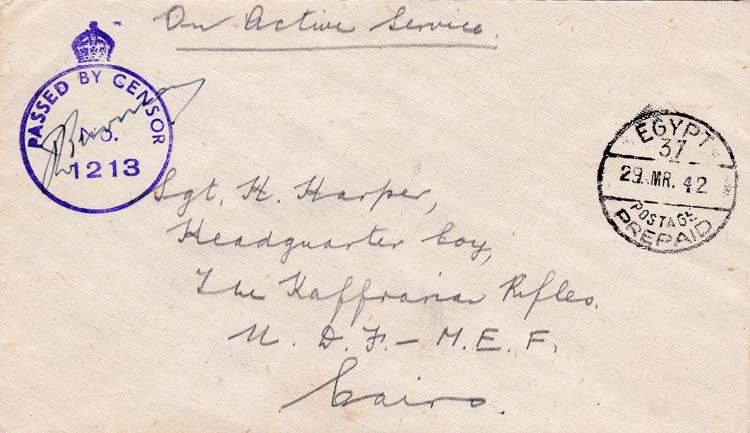 On Active Service.
PASSED BY CENSOR
No.
1213
EGYPT
37
29.MR.42
POSTAGE
PREPAID
Sgt. H. Harper,
Headquarter Coy,
The Kaffrarian Rifles.
U. D. F. – M. E. F.
Cairo.